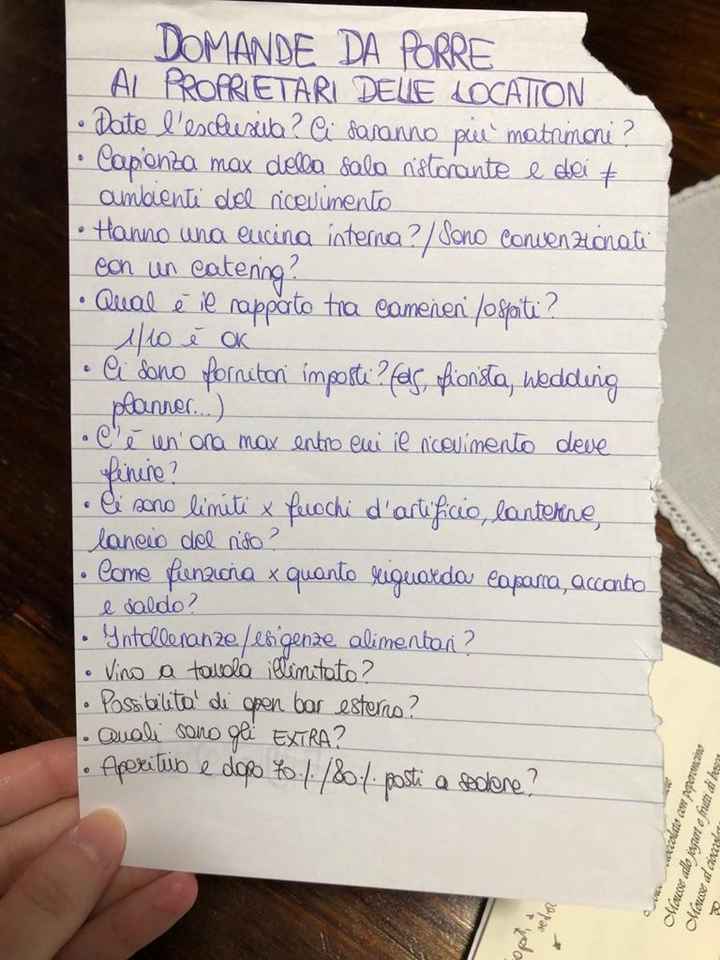 DOMANDE DA PORRE
AI PROPRIETARI DELLE LOCATION
• Date l'esclusiva? Ci saranno più matrimoni?
• Capienza max della sala ristorante e dei ≠
ambienti del ricevimento
• Hanno una cucina interna?/Sono convenzionati
con un catering?
• Qual è il rapporto tra camerieri/ospiti?
1/10 è OK
• Ci sono fornitori imposti? (es, fiorista, wedding
planner...)
• C'è un'ora max entro cui il ricevimento deve
finire?
• Ci sono limiti x fuochi d'artificio, lanterne,
lancio del riso?
• Come funziona x quanto riguarda caparra, acconto
e saldo?
• Intolleranze/esigenze alimentari?
• Vino a tavola illimitato?
• Possibilità di open bar esterno?
• Quali sono gli EXTRA?
• Aperitivo e dopo 70%/80% posti a sedere?
cioccolato con peperoncino
Mousse allo yogurt e frutti di
Mousse al